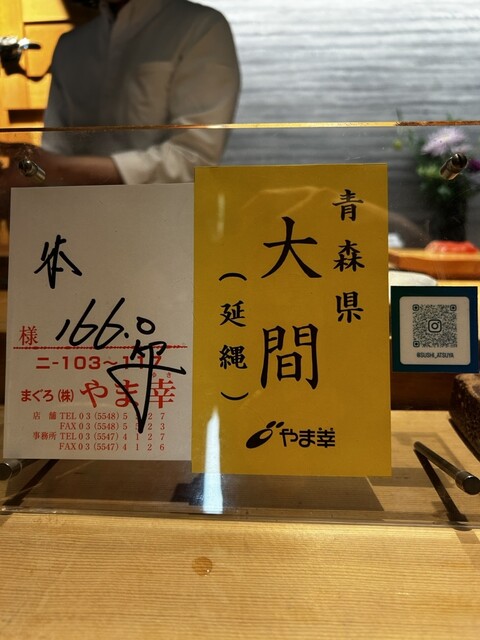 本
166.0
様
ニ-103～1 7
まぐろ(株) やま幸
店 舗 TEL 03 (5548) 5 2 7
FAX 03 (5548) 5 2 3
事務所 TEL 03 (5547) 4 1 2 7
FAX 03 (5547) 4 1 2 6
青森県
大間
(延縄)
やま幸
@SUSHI_ATSUYA